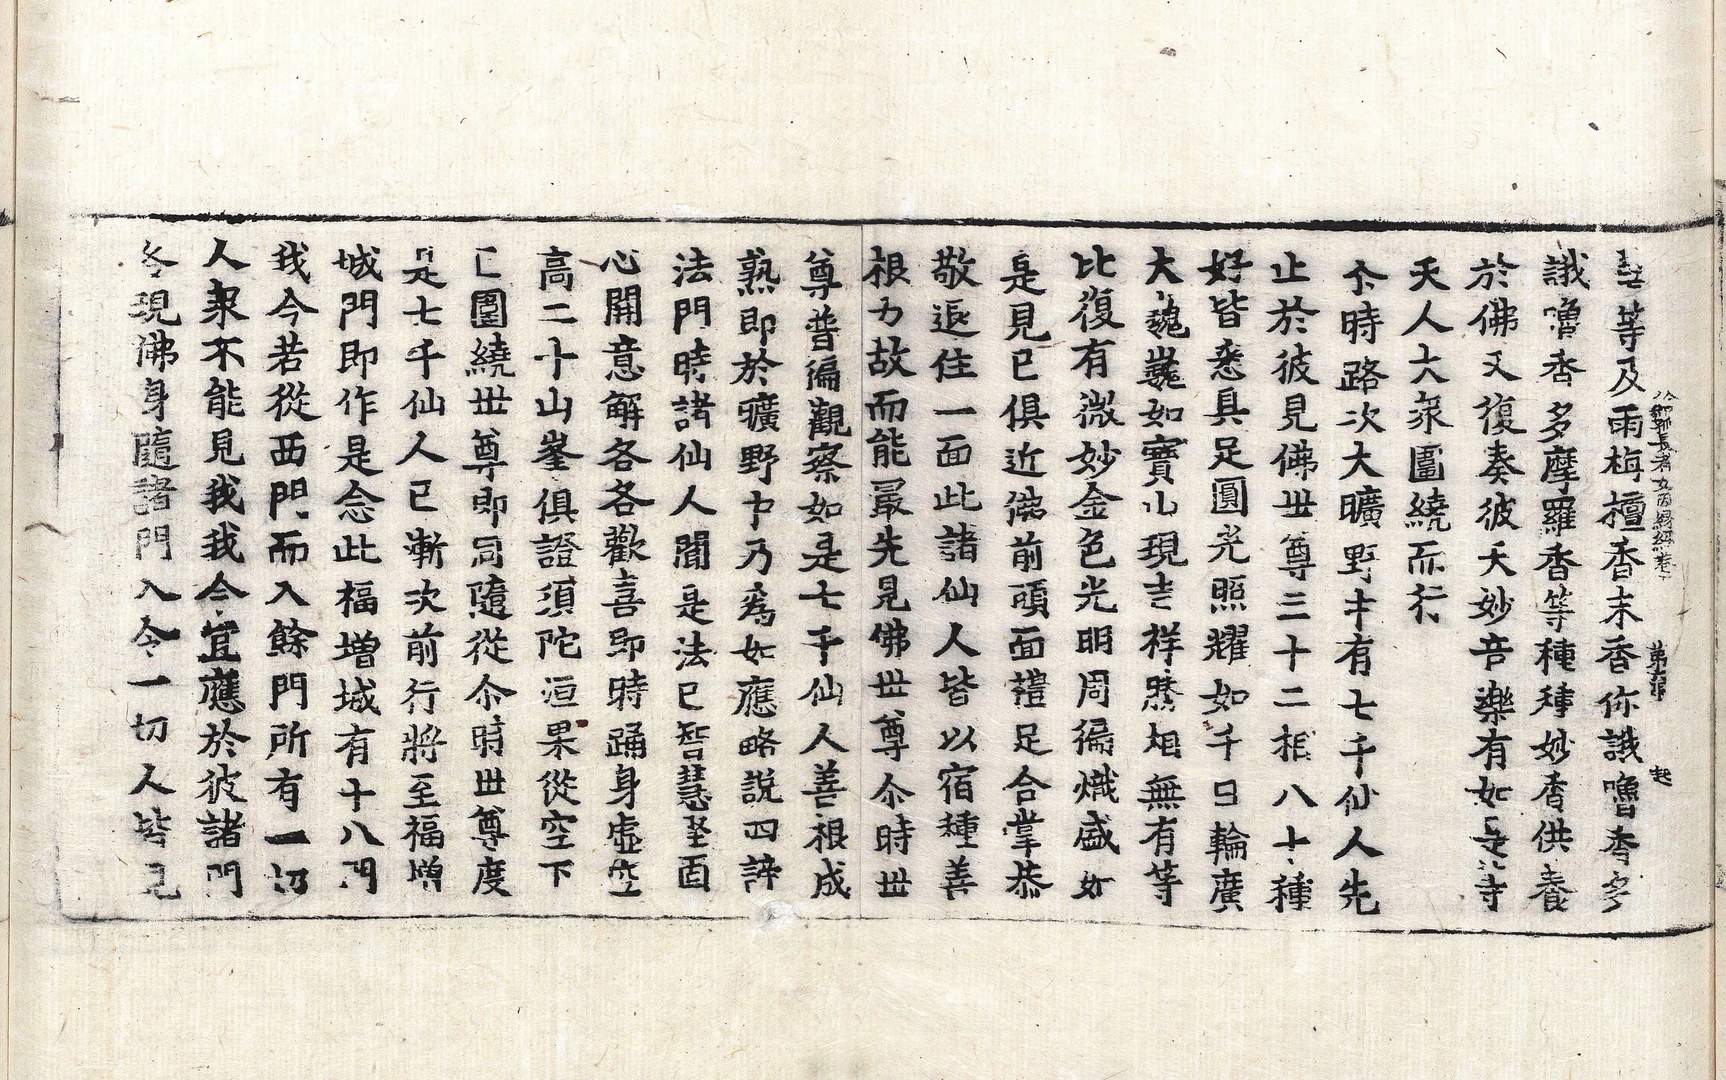 華等及雨栴檀香末香你誐嚕香多
誐嚕香多摩羅香等種種妙香供養
於佛又復奏彼天妙音樂有如是等
天人大衆圍繞而行
尒時路次大曠野中有七千仙人先
止於彼見佛世尊三十二相八十種
好皆悉具足圓光照耀如千日輪廣
大巍巍如寶山現吉祥熾相無有等
比復有微妙金色光明周徧熾盛如
是見已俱近佛前頭面禮足合掌恭
敬退住一面此諸仙人皆以宿種善
根力故而能最先見佛世尊尒時世
尊普徧觀察如是七千仙人善根成
熟即於曠野中乃爲如應略說四諦
法門時諸仙人聞是法已智慧堅固
心開意解各各歡喜即時踊身虛空
高二十山峯俱證須陀洹果從空下
已圍繞世尊即同隨從尒時世尊度
是七千仙人已漸次前行將至福增
城門即作是念此福增城有十八門
我今若從西門而入餘門所有一切
人衆不能見我我今宜應於彼諸門
各現佛身隨諸門入令一切人皆見